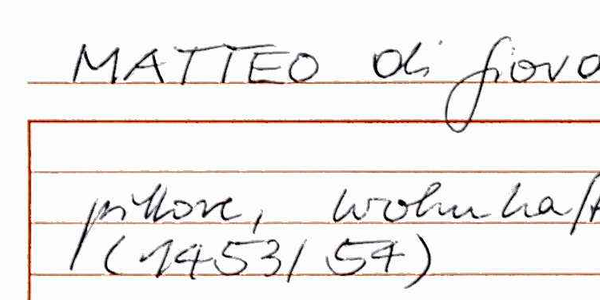 MATTEO di Giova
pittore, wohnhaft
(1453/54)